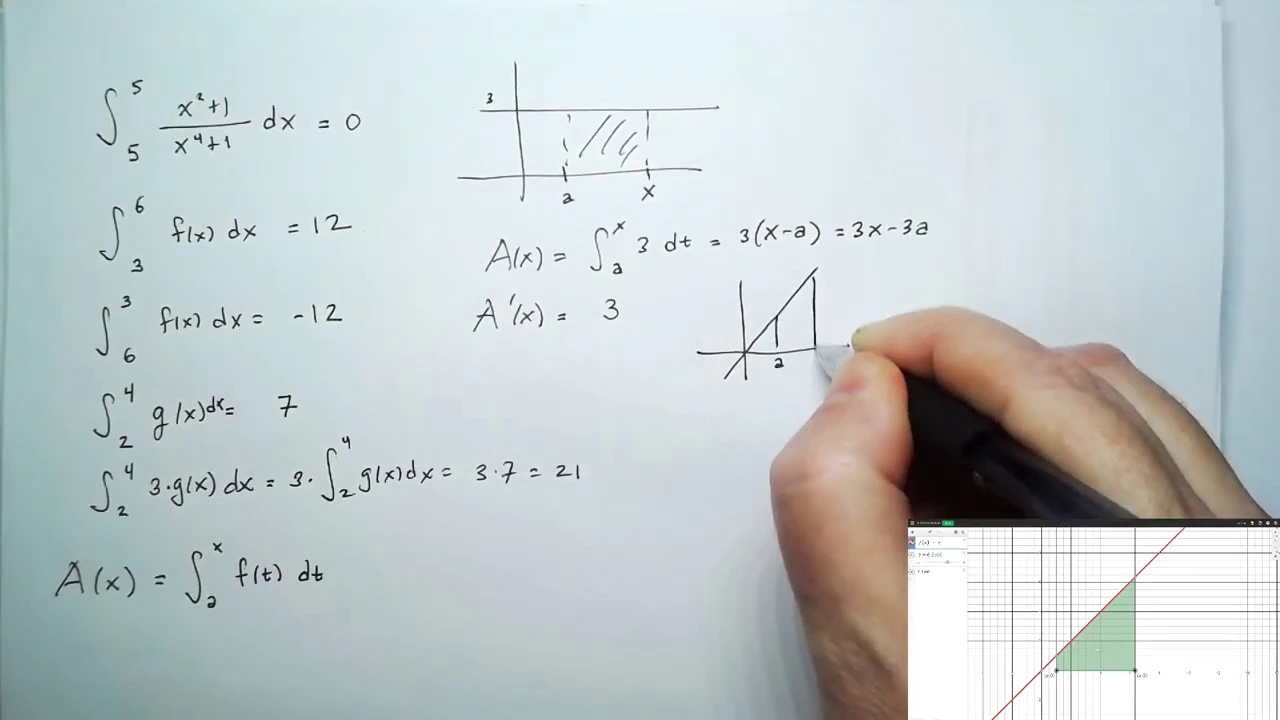 ∫₅⁵ (x²+1)/(x⁴+1) dx = 0
∫₃⁶ f(x) dx = 12
∫₆³ f(x) dx = -12
∫₂⁴ g(x)dx = 7
∫₂⁴ 3·g(x) dx = 3·∫₂⁴ g(x)dx = 3·7 = 21
A(x) = ∫ₐˣ f(t) dt
3
a x
A(x) = ∫ₐˣ 3 dt = 3(x-a) = 3x-3a
A'(x) = 3
a